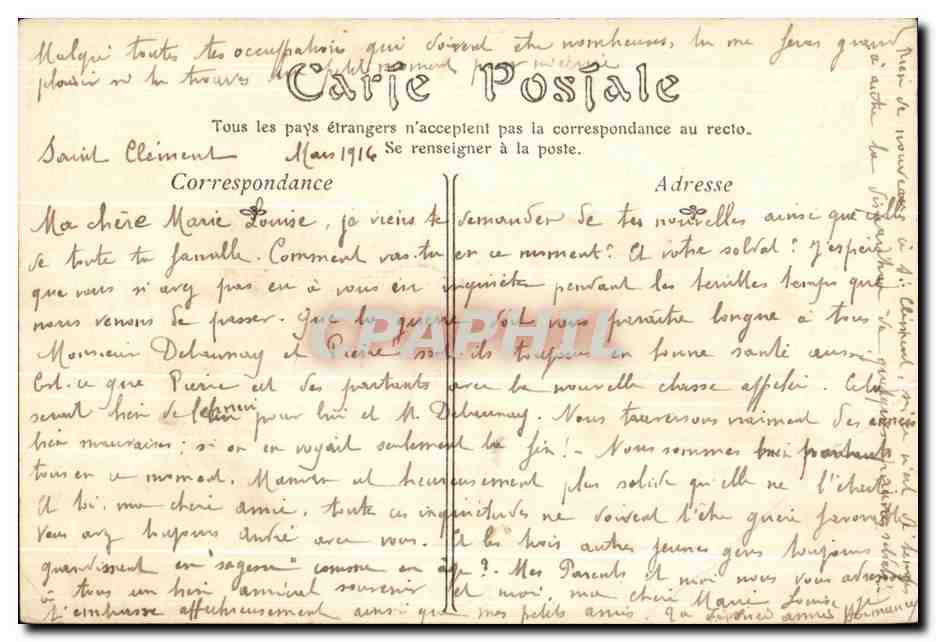 Malgré toutes tes occupations qui doivent être nombreuses, tu me feras grand
plaisir si tu trouves petit moment pour
Carte Postale
Tous les pays étrangers n'acceptent pas la correspondance au recto.
Se renseigner à la poste.
Saint Clément Mars 1916
Correspondance
Adresse
Ma chère Marie Louise, je viens te demander de tes nouvelles ainsi que celles
de toute ta famille. Comment vas-tu en ce moment? Et votre soldat? J'espère
que vous n'avez pas eu à vous en inquiéter pendant les terribles temps que
nous venons de passer. Que la guerre doit vous paraître longue à tous
Monsieur Delaunay et Pierre sont-ils toujours en bonne santé aussi
Est-ce que Pierre est des partants avec la nouvelle classe appelée. Cela
serait bien de pour lui et M. Delaunay. Nous traversons vraiment des
bien mauvaises; si on en voyait seulement la fin! - Nous sommes bien portants
tous en ce moment. Maman est heureusement plus solide qu'elle ne l'était
Et toi, ma chère amie, toute ces inquiétudes ne doivent t'être guère
Vous avez toujours André avec vous. Et les trois autres jeunes gens toujours
grandissent en "sagesse" comme en âge? Mes Parents et moi nous vous adressons
à tous un bien amical souvenir et moi, ma chère Marie Louise je
t'embrasse affectueusement ainsi que mes petits amis. Ta
Rien de nouveau à St Clément, si ce n'est
CPAPHIL